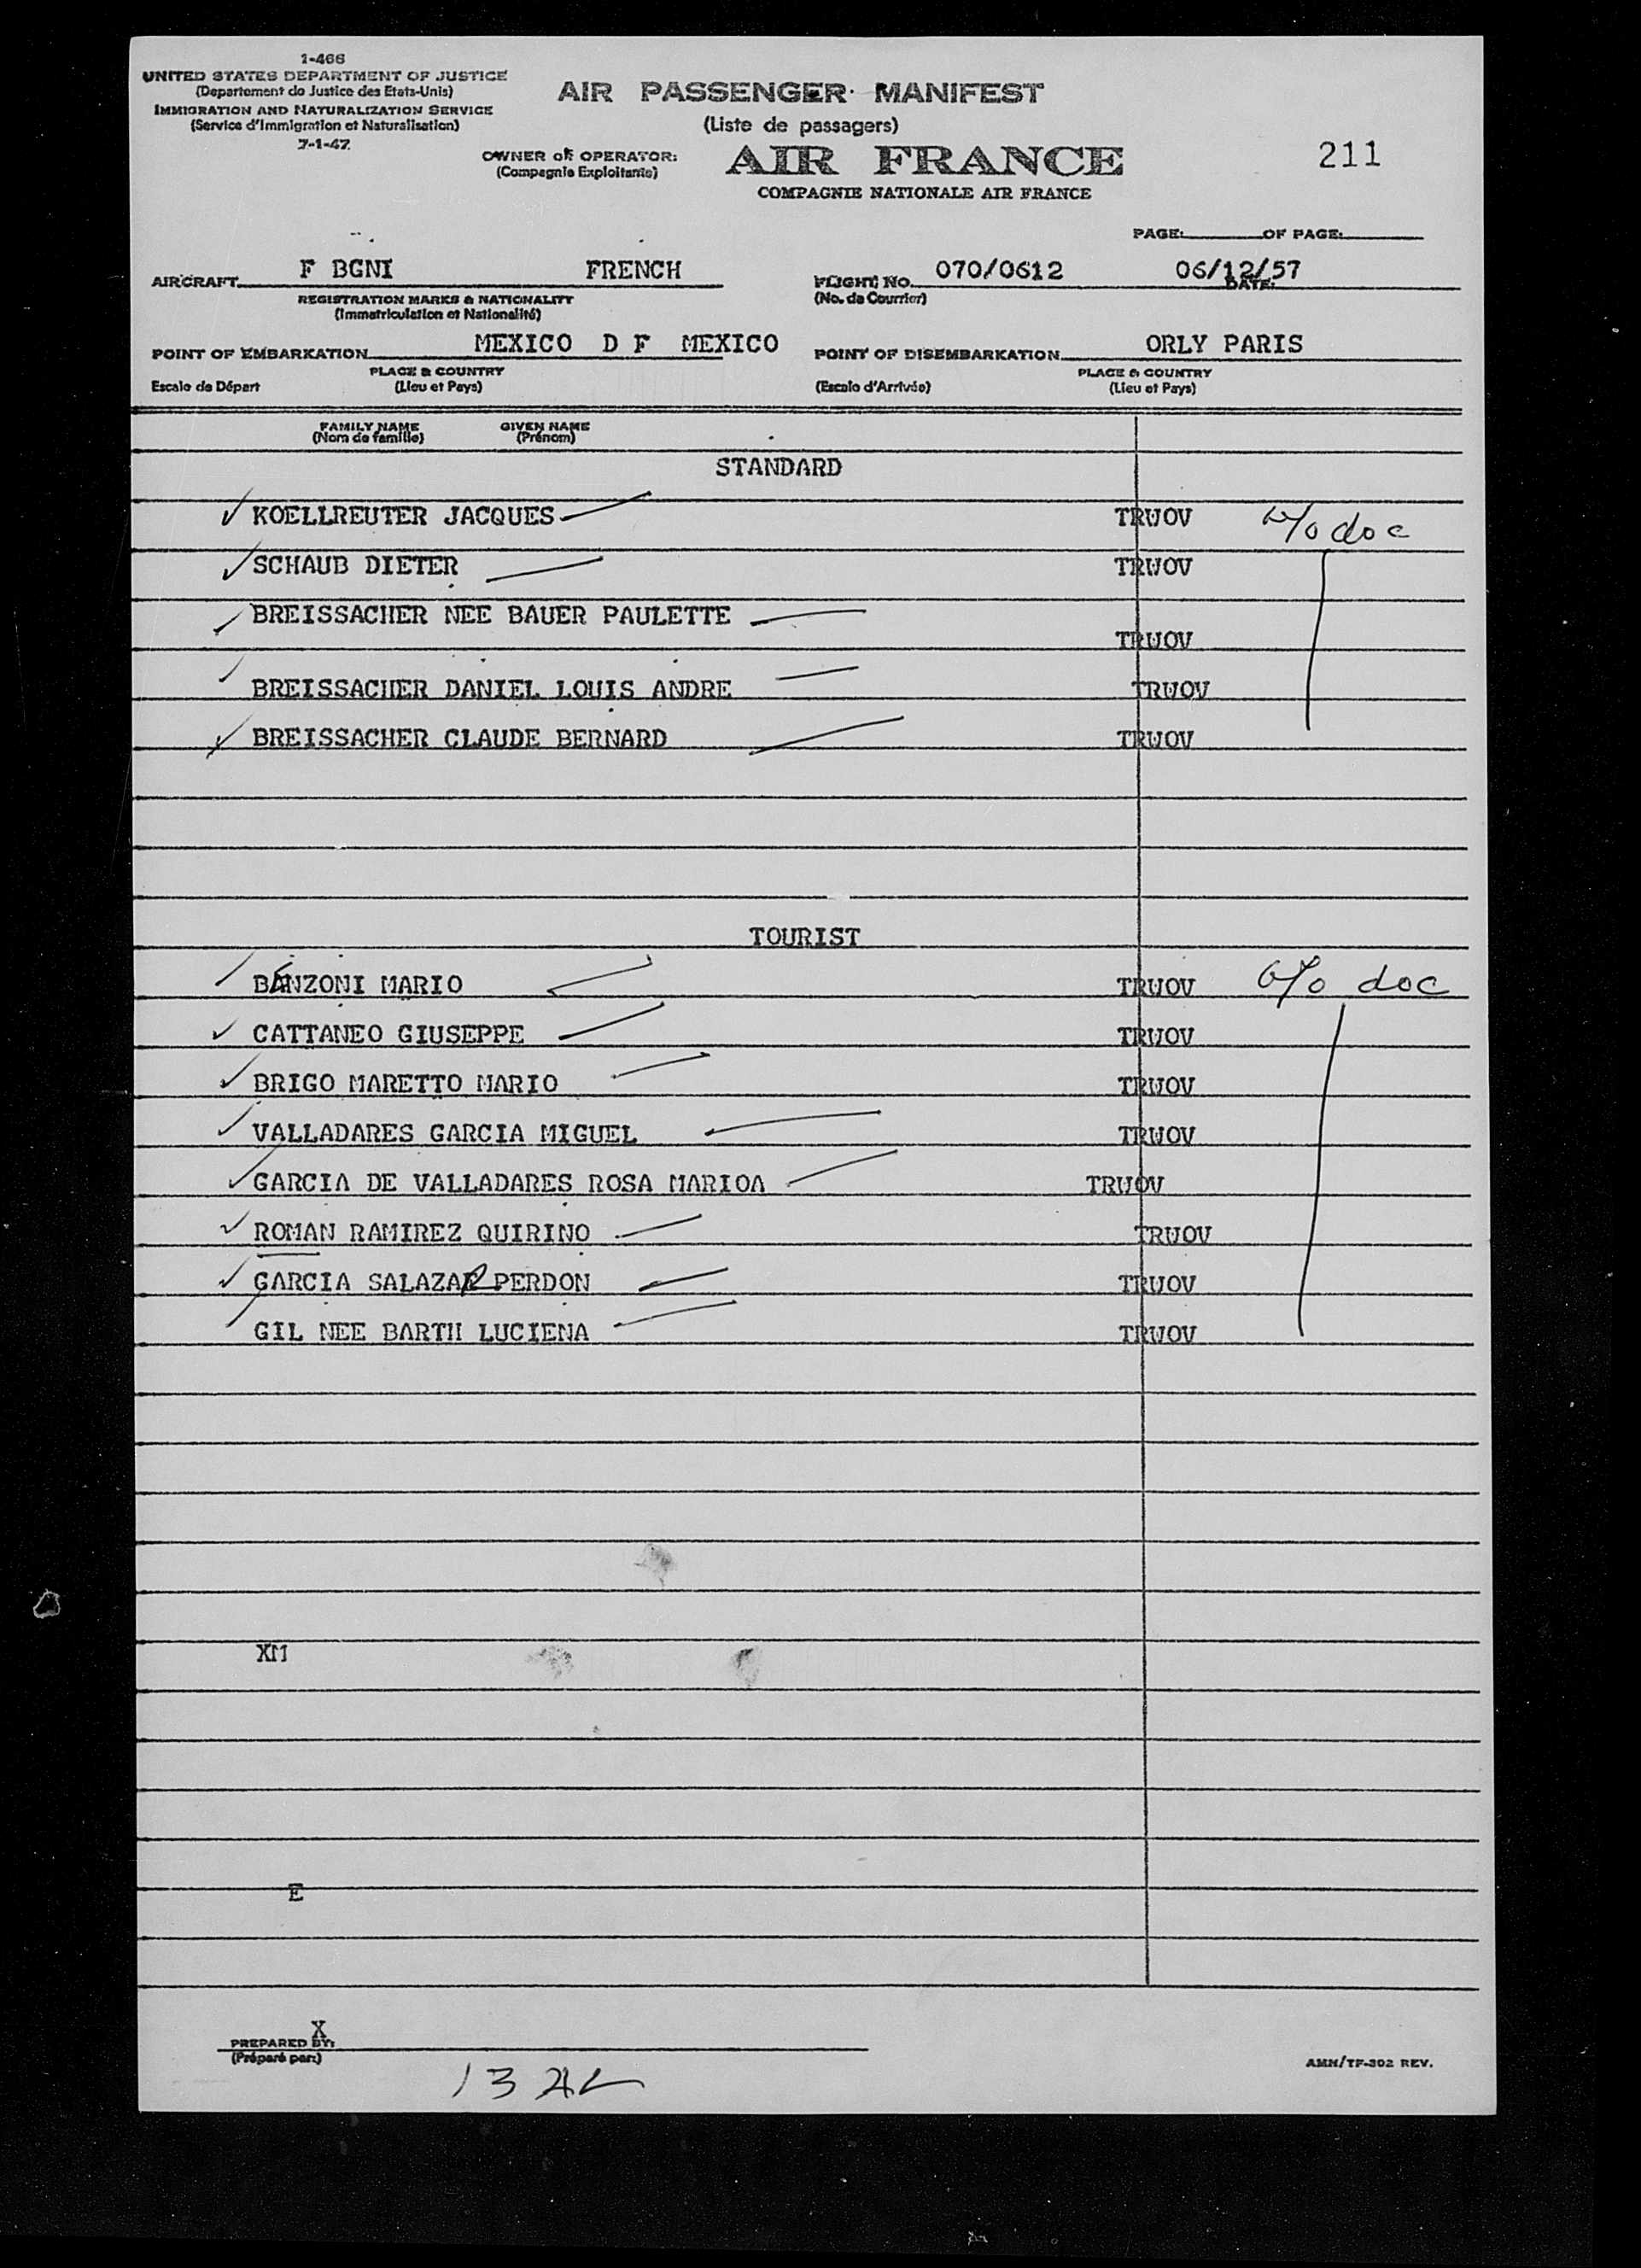 1-466
UNITED STATES DEPARTMENT OF JUSTICE
(Departement de Justice des Etats-Unis)
IMMIGRATION AND NATURALIZATION SERVICE
(Service d'Immigration et Naturalisation)
7-1-47
AIR PASSENGER MANIFEST
(Liste de passagers)
OWNER OR OPERATOR:
(Compagnie Exploitante)
AIR FRANCE
COMPAGNIE NATIONALE AIR FRANCE
211
PAGE: OF PAGE:
AIRCRAFT F BGNI FRENCH
REGISTRATION MARKS & NATIONALITY
(Immatriculation et Nationalité)
FLIGHT NO. 070/0612 06/12/57
DATE:
(No. de Courrier)
POINT OF EMBARKATION MEXICO D F MEXICO
PLACE & COUNTRY
Escale de Départ (Lieu et Pays)
POINT OF DISEMBARKATION ORLY PARIS
PLACE & COUNTRY
(Escale d'Arrivée) (Lieu et Pays)
FAMILY NAME GIVEN NAME
(Nom de famille) (Prénom)
STANDARD
KOELLREUTER JACQUES TRWOV w/o doc
SCHAUB DIETER TRWOV
BREISSACHER NEE BAUER PAULETTE
TRWOV
BREISSACHER DANIEL LOUIS ANDRE TRWOV
BREISSACHER CLAUDE BERNARD TRWOV
TOURIST
BANZONI MARIO TRWOV w/o doc
CATTANEO GIUSEPPE TRWOV
BRIGO MARETTO MARIO TRWOV
VALLADARES GARCIA MIGUEL TRWOV
GARCIA DE VALLADARES ROSA MARIOA TRWOV
ROMAN RAMIREZ QUIRINO TRWOV
GARCIA SALAZAR PERDON TRWOV
GIL NEE BARTH LUCIENA TRWOV
XM
E
X
PREPARED BY:
(Préparé par:)
13
AMN/TF-302 REV.